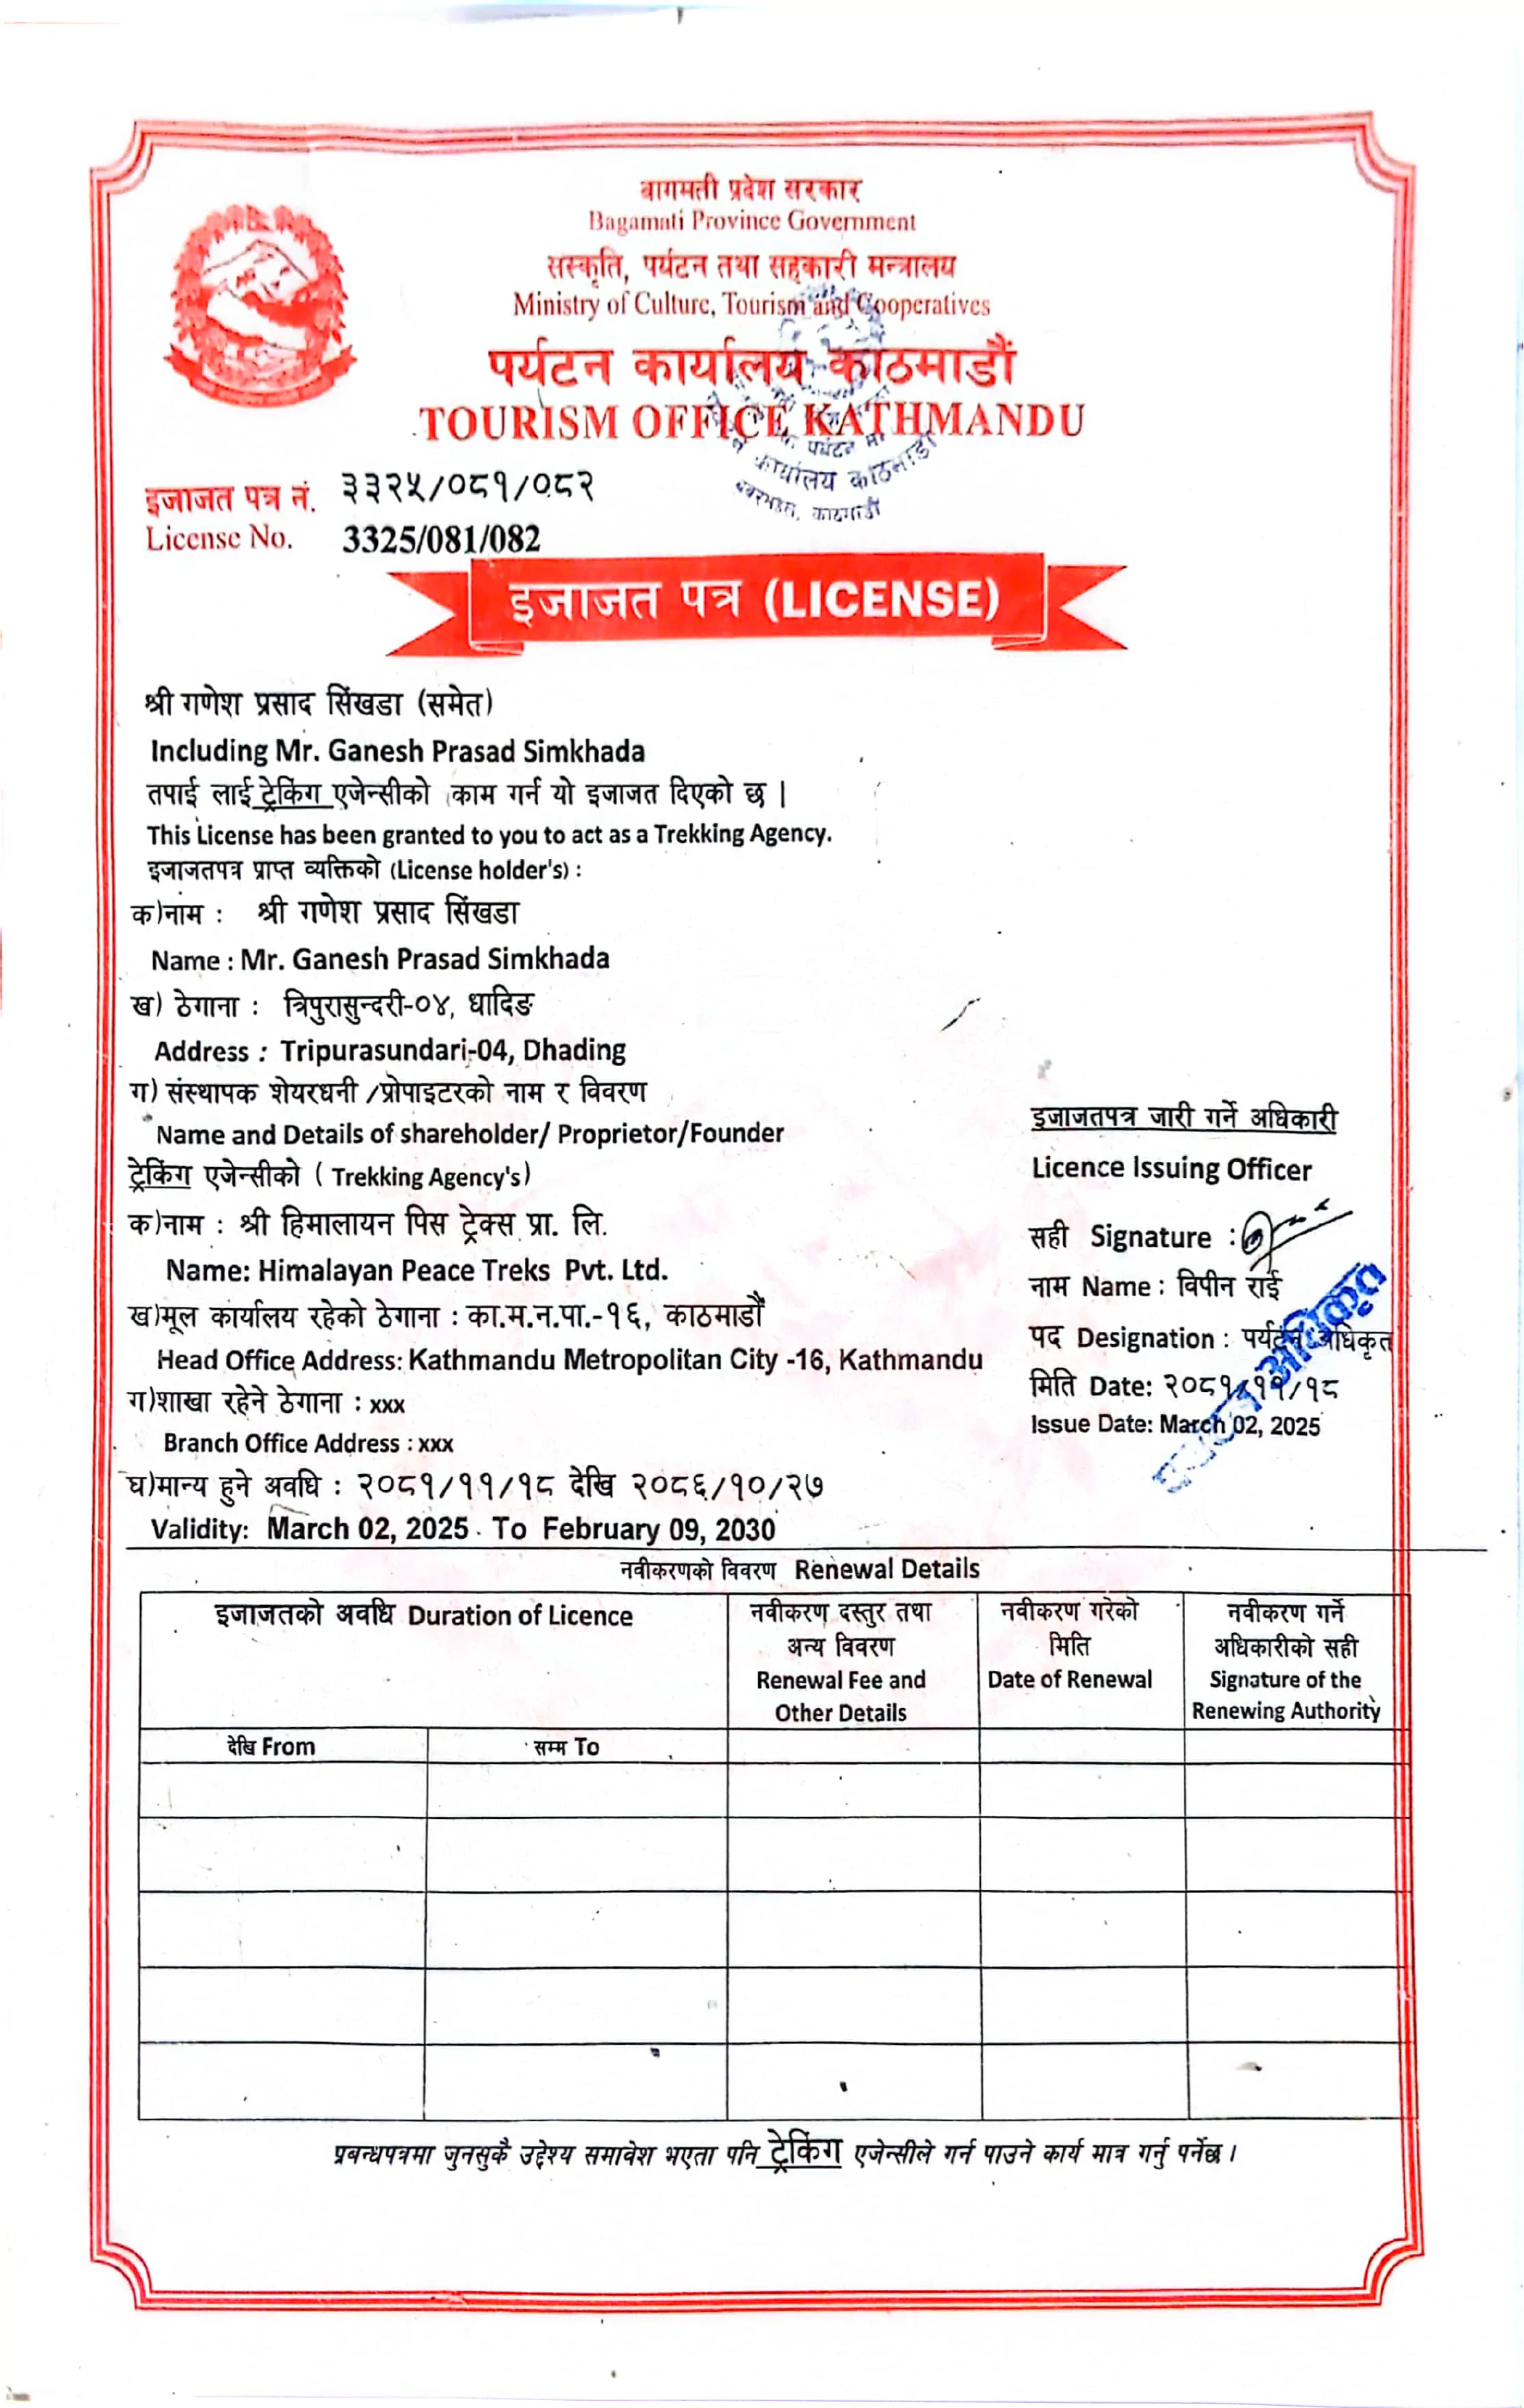 बागमती प्रदेश सरकार
Bagamati Province Government
संस्कृति, पर्यटन तथा सहकारी मन्त्रालय
Ministry of Culture, Tourism and Cooperatives
पर्यटन कार्यालय काठमाडौं
TOURISM OFFICE KATHMANDU
कार्यालय काठमाडौं
इजाजत पत्र नं. ३३२५/०८१/०८२
License No. 3325/081/082
इजाजत पत्र (LICENSE)
श्री गणेश प्रसाद सिंखडा (समेत)
Including Mr. Ganesh Prasad Simkhada
तपाई लाई ट्रेकिंग एजेन्सीको काम गर्न यो इजाजत दिएको छ |
This License has been granted to you to act as a Trekking Agency.
इजाजतपत्र प्राप्त व्यक्तिको (License holder's) :
क)नाम : श्री गणेश प्रसाद सिंखडा
Name : Mr. Ganesh Prasad Simkhada
ख) ठेगाना : त्रिपुरासुन्दरी-०४, धादिङ
Address : Tripurasundari-04, Dhading
ग) संस्थापक शेयरधनी /प्रोपाइटरको नाम र विवरण
Name and Details of shareholder/ Proprietor/Founder
ट्रेकिंग एजेन्सीको ( Trekking Agency's)
क)नाम : श्री हिमालायन पिस ट्रेक्स प्रा. लि.
Name: Himalayan Peace Treks Pvt. Ltd.
ख)मूल कार्यालय रहेको ठेगाना : का.म.न.पा.-१६, काठमाडौं
Head Office Address: Kathmandu Metropolitan City -16, Kathmandu
ग)शाखा रहेने ठेगाना : xxx
Branch Office Address : xxx
घ)मान्य हुने अवधि : २०८१/११/१८ देखि २०८६/१०/२७
Validity: March 02, 2025 To February 09, 2030
इजाजतपत्र जारी गर्ने अधिकारी
Licence Issuing Officer
सही Signature :
नाम Name : विपीन राई
पद Designation : पर्यटन अधिकृत
मिति Date: २०८१/११/१८
Issue Date: March 02, 2025
अधिकृत
नवीकरणको विवरण Renewal Details
इजाजतको अवधि Duration of Licence
नवीकरण दस्तुर तथा
अन्य विवरण
Renewal Fee and
Other Details
नवीकरण गरेको
मिति
Date of Renewal
नवीकरण गर्ने
अधिकारीको सही
Signature of the
Renewing Authority
देखि From
सम्म To
प्रबन्धपत्रमा जुनसुकै उद्देश्य समावेश भएता पनि ट्रेकिंग एजेन्सीले गर्न पाउने कार्य मात्र गर्नु पर्नेछ ।